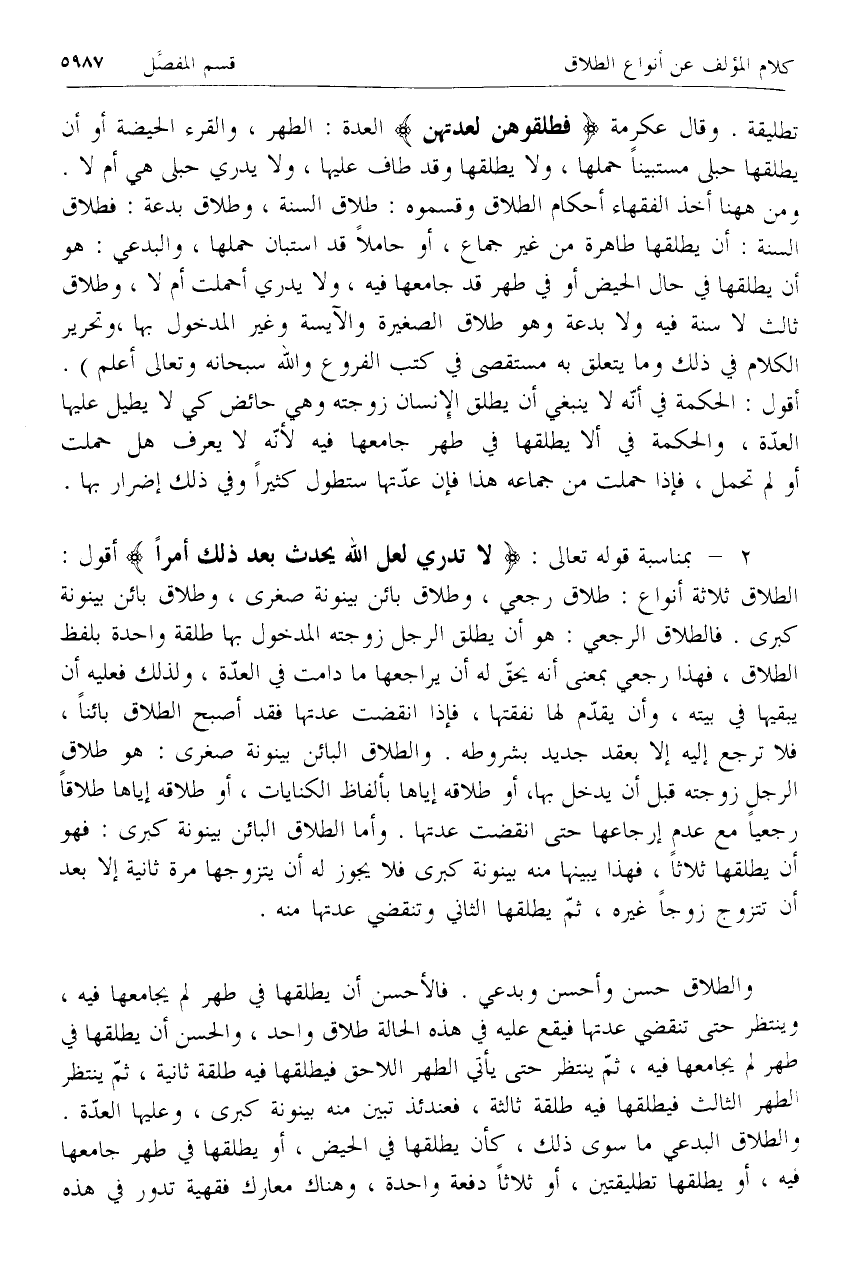 كلام المؤلف عن أنواع الطلاق قسم المفصَّل ٥٩٨٧
تطليقة . وقال عكرمة ﴿ فطلقوهن لعدتهن ﴾ العدة : الطهر ، والقرء الحيضة أو أن
يطلقها حبلى مستبيناً حملها ، ولا يطلقها وقد طاف عليها ، ولا يدري حبلى هي أم لا .
ومن ههنا أخذ الفقهاء أحكام الطلاق وقسموه : طلاق السنة ، وطلاق بدعة : فطلاق
السنة : أن يطلقها طاهرة من غير جماع ، أو حاملاً قد استبان حملها ، والبدعي : هو
أن يطلقها في حال الحيض أو في طهر قد جامعها فيه ، ولا يدري أحملت أم لا ، وطلاق
ثالث لا سنة فيه ولا بدعة وهو طلاق الصغيرة والآيسة وغير المدخول بها ،وتحرير
الكلام في ذلك وما يتعلق به مستقصى في كتب الفروع والله سبحانه وتعالى أعلم ) .
أقول : الحكمة في أنّه لا ينبغي أن يطلق الإنسان زوجته وهي حائض كي لا يطيل عليها
العدّة ، والحكمة في ألا يطلقها في طهر جامعها فيه لأنّه لا يعرف هل حملت
أو لم تحمل ، فإذا حملت من جماعه هذا فإن عدّتها ستطول كثيراً وفي ذلك إضرار بها .
٢ – بمناسبة قوله تعالى : ﴿ لا تدري لعل الله يحدث بعد ذلك أمراً ﴾ أقول :
الطلاق ثلاثة أنواع : طلاق رجعي ، وطلاق بائن بينونة صغرى ، وطلاق بائن بينونة
كبرى . فالطلاق الرجعي : هو أن يطلق الرجل زوجته المدخول بها طلقة واحدة بلفظ
الطلاق ، فهذا رجعي بمعنى أنه يحقّ له أن يراجعها ما دامت في العدّة ، ولذلك فعليه أن
يبقيها في بيته ، وأن يقدّم لها نفقتها ، فإذا انقضت عدتها فقد أصبح الطلاق بائناً ،
فلا ترجع إليه إلا بعقد جديد بشروطه . والطلاق البائن بينونة صغرى : هو طلاق
الرجل زوجته قبل أن يدخل بها، أو طلاقه إياها بألفاظ الكنايات ، أو طلاقه إياها طلاقاً
رجعياً مع عدم إرجاعها حتى انقضت عدتها . وأما الطلاق البائن بينونة كبرى : فهو
أن يطلقها ثلاثاً ، فهذا يبينها منه بينونة كبرى فلا يجوز له أن يتزوجها مرة ثانية إلا بعد
أن تتزوج زوجاً غيره ، ثمّ يطلقها الثاني وتنقضي عدتها منه .
والطلاق حسن وأحسن وبدعي . فالأحسن أن يطلقها في طهر لم يجامعها فيه ،
وينتظر حتى تنقضي عدتها فيقع عليه في هذه الحالة طلاق واحد ، والحسن أن يطلقها في
طهر لم يجامعها فيه ، ثمّ ينتظر حتى يأتي الطهر اللاحق فيطلقها فيه طلقة ثانية ، ثمّ ينتظر
الطهر الثالث فيطلقها فيه طلقة ثالثة ، فعندئذ تبين منه بينونة كبرى ، وعليها العدّة .
والطلاق البدعي ما سوى ذلك ، كأن يطلقها في الحيض ، أو يطلقها في طهر جامعها
فيه ، أو يطلقها تطليقتين ، أو ثلاثاً دفعة واحدة ، وهناك معارك فقهية تدور في هذه